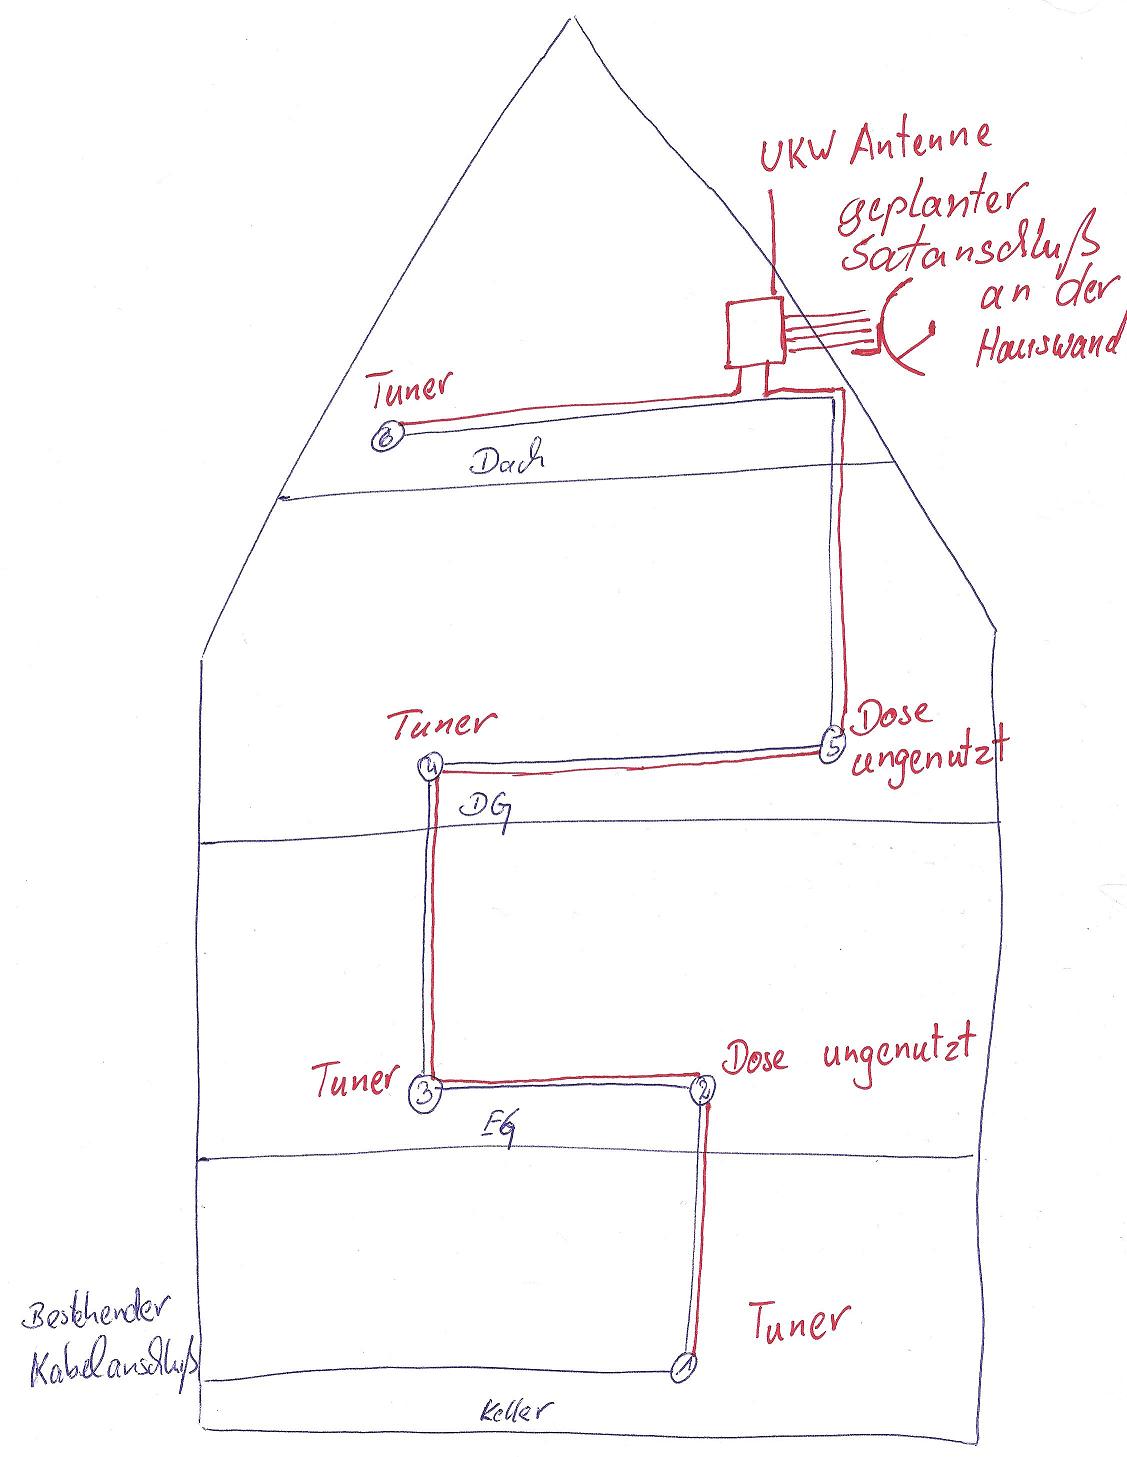 UKW Antenne
geplanter
Satanschluß
an der
Hauswand
Tuner
6
Dach
Tuner
4
DG
5
Dose
ungenutzt
Tuner
3
EG
2
Dose ungenutzt
Bestehender
Kabelanschluß
1
Tuner
Keller